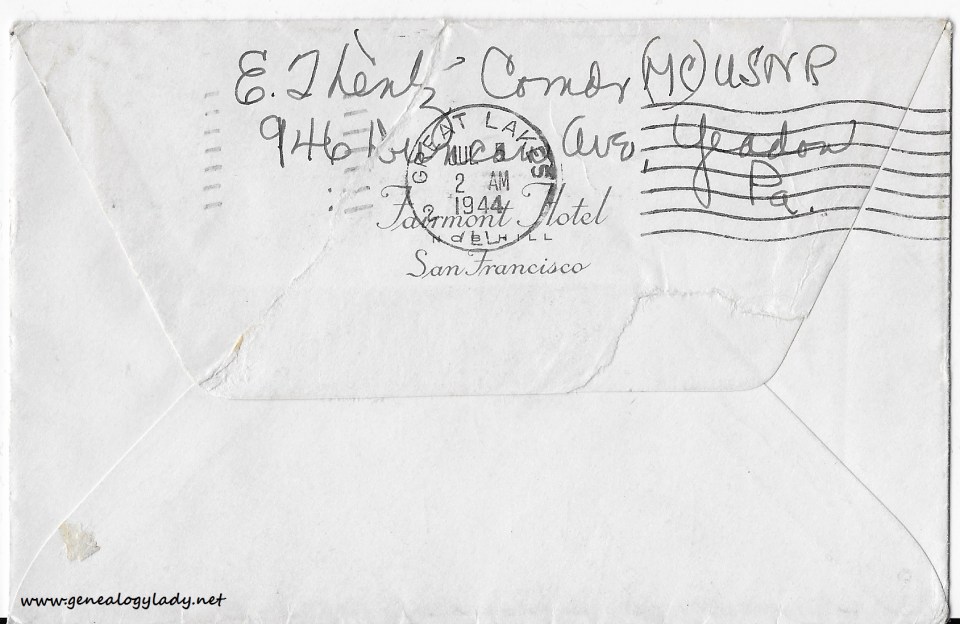 E. Comdr (MC) USNR
946 Ave, Yeadon
Pa.
GREAT LAKES
2 AM
1944
Fairmont Hotel
NOB HILL
San Francisco
www.genealogylady.net